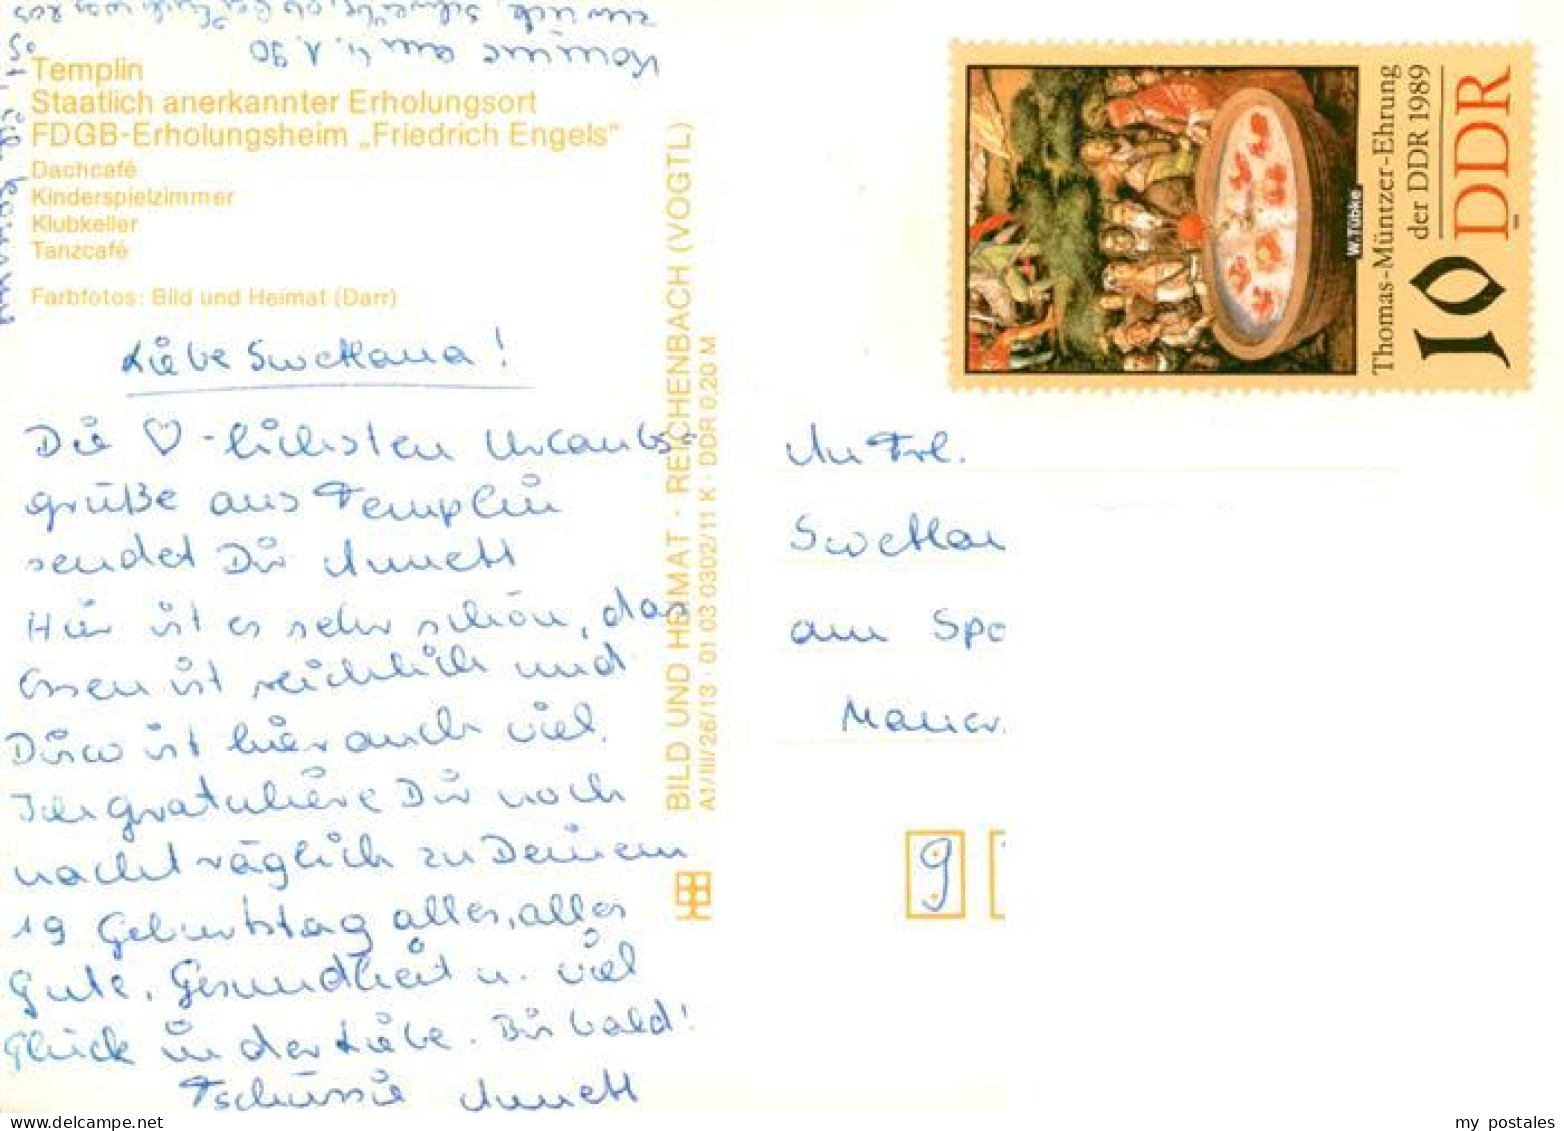 Templin
Staatlich anerkannter Erholungsort
FDGB-Erholungsheim „Friedrich Engels"
Dachcafé
Kinderspielzimmer
Klubkeller
Tanzcafé
Farbfotos: Bild und Heimat (Darr)
Liebe Swetlana!
Die ♡-lichsten Urlaubs-
grüße aus Templin
sendet Dir Annett
Hier ist es sehr schön, das
Essen ist reichlich und
Disco ist hier auch viel.
Ich gratuliere Dir noch
nachträglich zu Deinem
19 Geburtstag alles, alles
Gute, Gesundheit u. viel
Glück in der Liebe. Bis bald!
Tschüssie Annett
Komme am 4.1.90
zurück
BILD UND HEIMAT · REICHENBACH (VOGTL)
A1/III/26/13 · 01 03 0302/11 K · DDR 0,20 M
W. Tübke
Thomas-Müntzer-Ehrung
der DDR 1989
10 DDR
An Frl.
Swetlan
am Spo
Mauer
9
my postales